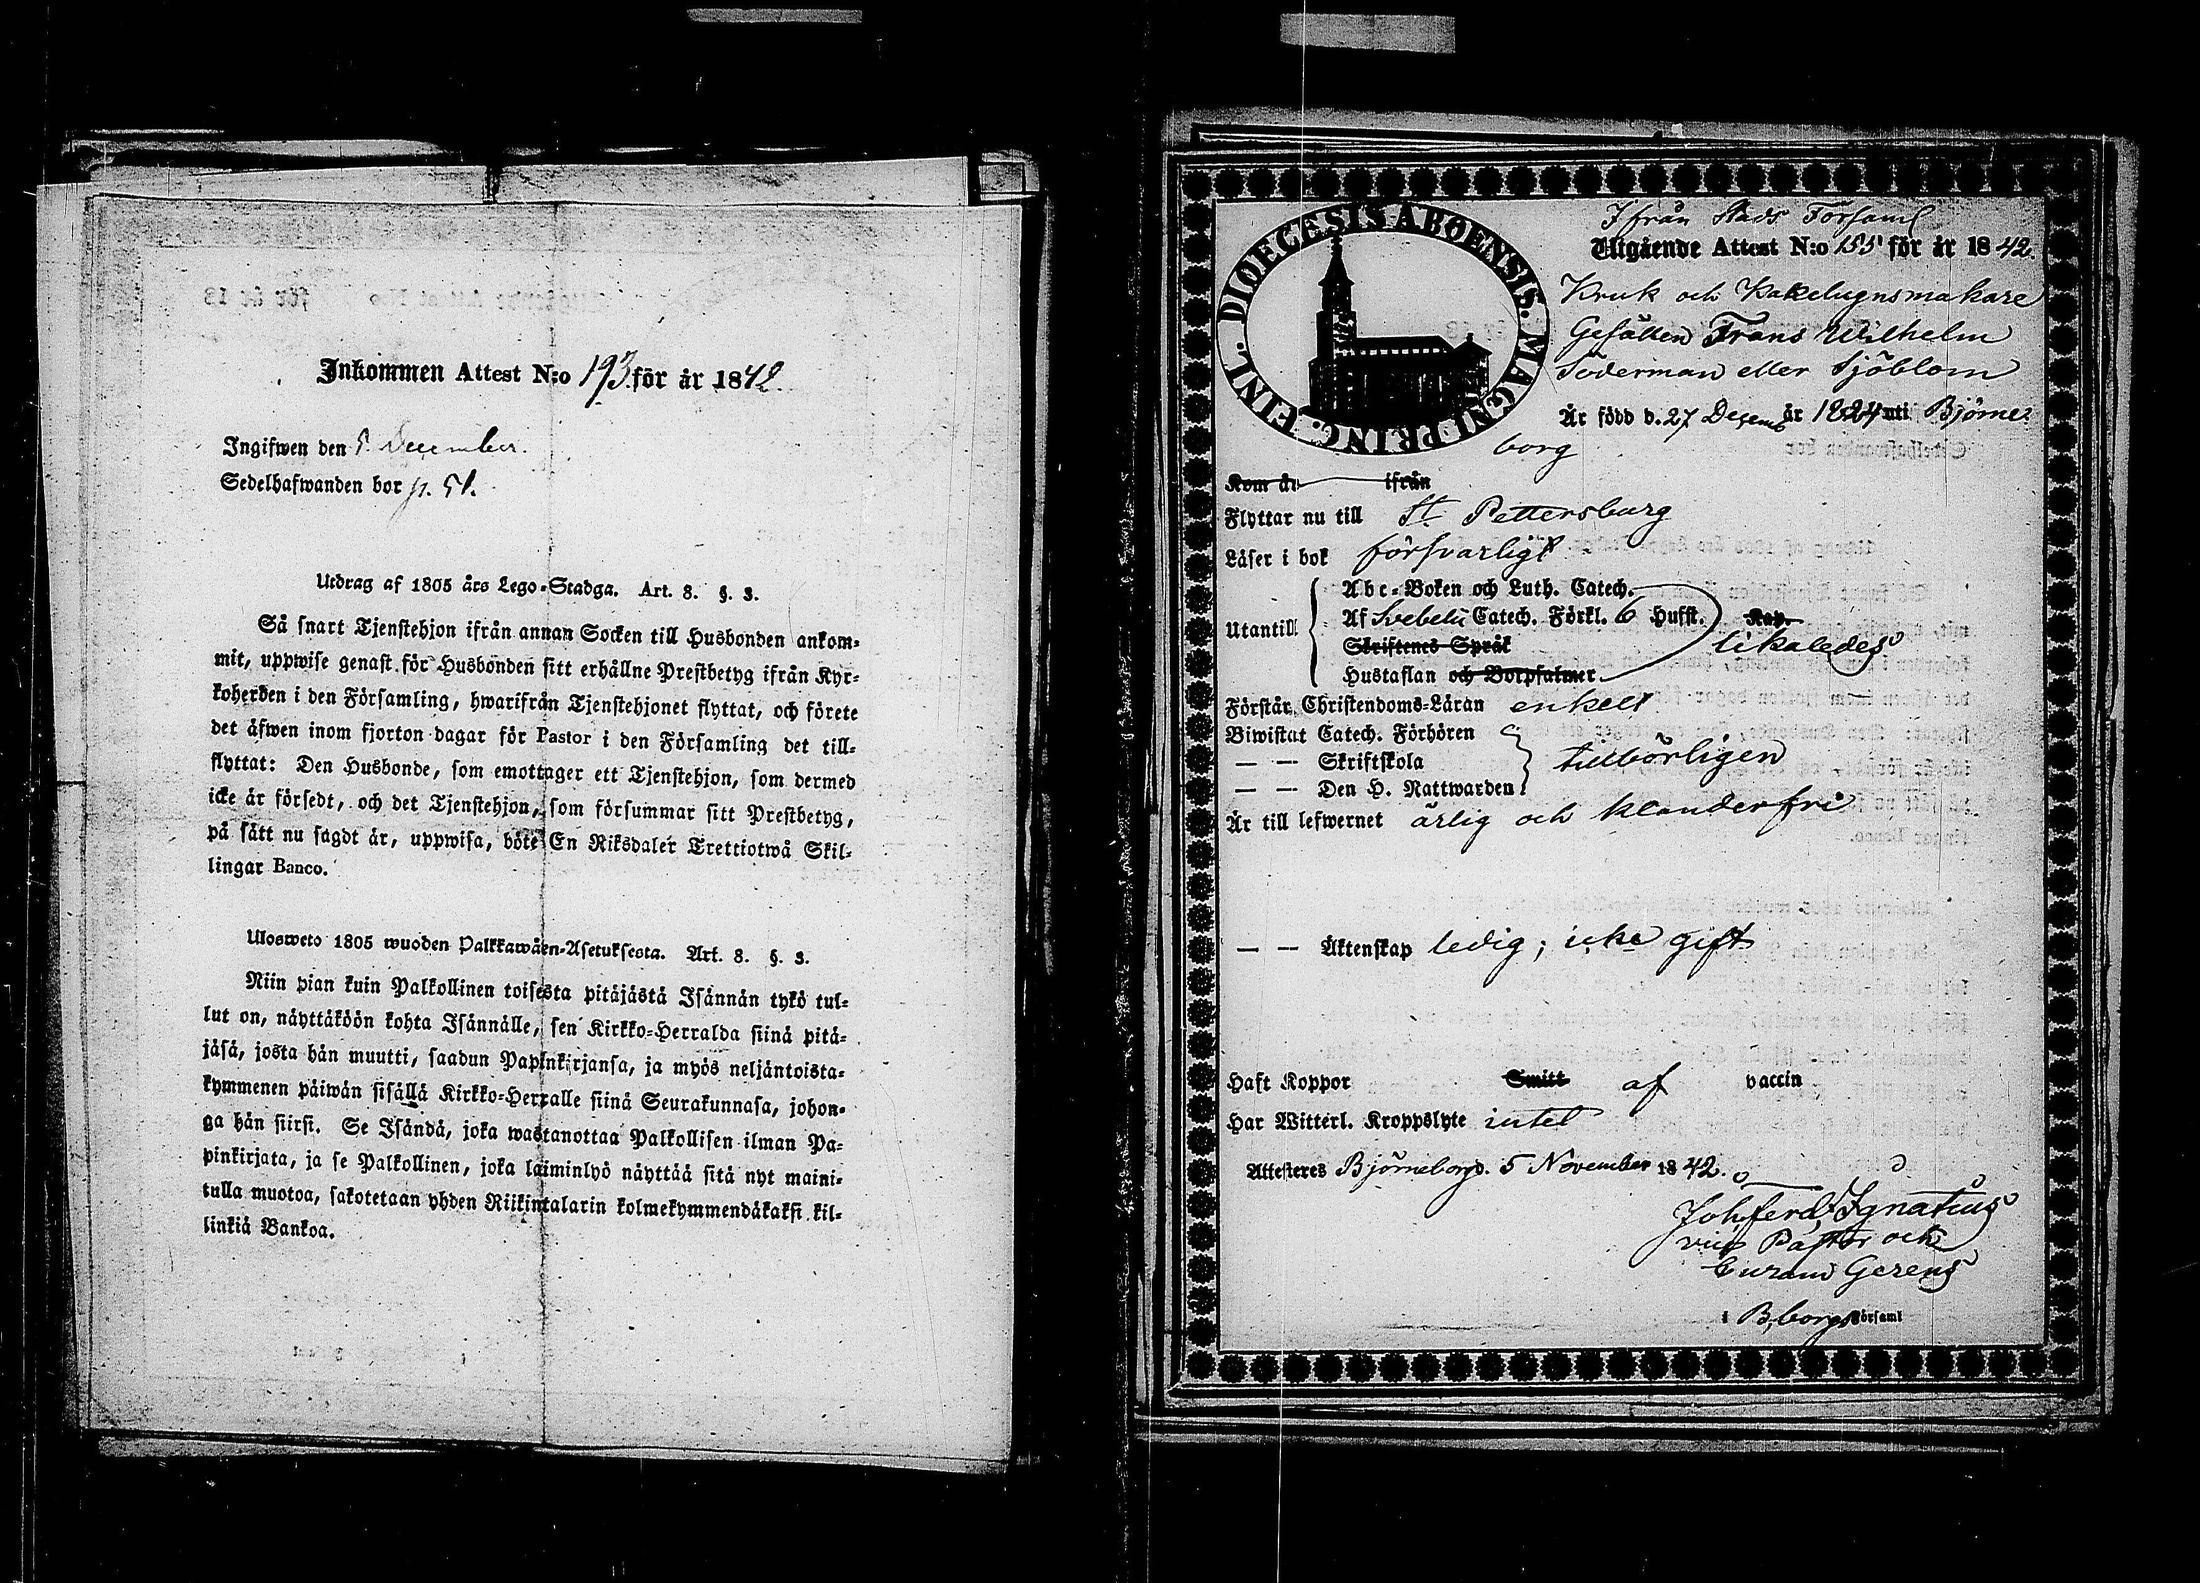 Inkommen Attest N:o 193 för år 1842.
Ingifwen den 5 December.
Sedelhafwanden bor p. 51.
Utdrag af 1805 års Lego-Stadga. Art. 8. §. 3.
Så snart Tjenstehjon ifrån annan Socken till Husbonden ankom-
mit, uppwise genast för Husbonden sitt erhållne Prestbetyg ifrån Kyr-
koherden i den Församling, hwarifrån Tjenstehjonet flyttat, och förete
det äfwen inom fjorton dagar för Pastor i den Församling det till-
flyttat: Den Husbonde, som emottager ett Tjenstehjon, som dermed
icke är försedt, och det Tjenstehjon, som försummar sitt Prestbetyg,
på sätt nu sagdt är, uppwisa, böte En Riksdaler Trettiotwå Skil-
lingar Banco.
Ulosweto 1805 wuoden Palkkawäen-Asetuksesta. Art. 8. §. 3.
Niin pian kuin Palkollinen toisesta pitäjästä Isännän tykö tul-
lut on, näyttäköön kohta Isännälle, sen Kirkko-Herralda siinä pitä-
jäsä, josta hän muutti, saadun Papinkirjansa, ja myös neljäntoista-
kymmenen päiwän sisällä Kirkko-Herralle siinä Seurakunnasa, johon-
ga hän siirsi. Se Isändä, joka wastanottaa Palkollisen ilman Pa-
pinkirjata, ja se Palkollinen, joka laiminlyö näyttää sitä nyt maini-
tulla muotoa, sakotetaan yhden Riikintalarin kolmekymmendäkaksi kil-
linkiä Bankoa.
DIOECESIS ABOENSIS. MAGNI PRINC. FINL.
Ifrån Stads Församl
Utgående Attest N:o 155 för år 1842.
Kruk och Kakelugnsmakare
Gesällen Frans Wilhelm
Söderman eller Sjöblom
Är född d. 27 Decemb år 1824 uti Björne-
borg
Kom år ifrån
Flyttar nu till St Pettersburg
Läser i bok försvarligt
Utantill Abc-Boken och Luth. Catech.
Af Svebelii Catech. Förkl. 6 Hufst. Kap.
Skriftenes Språk likaledes
Hustaflan och Botpsalmer
Förstår Christendoms-Läran enkelt
Biwistat Catech. Förhören
— — Skriftskola tillbörligen
— — Den H. Nattwarden
Är till lefwernet ärlig och klanderfri
— — Äktenskap ledig; icke gift
Haft Koppor Smitt af vaccin
Har Witterl. Kroppslyte intet
Attesteres Björneborg d. 5 November 1842.
Joh. Ferd. Ignatius
vice Pastor och
Curam Gerens
i B,borgs Församl